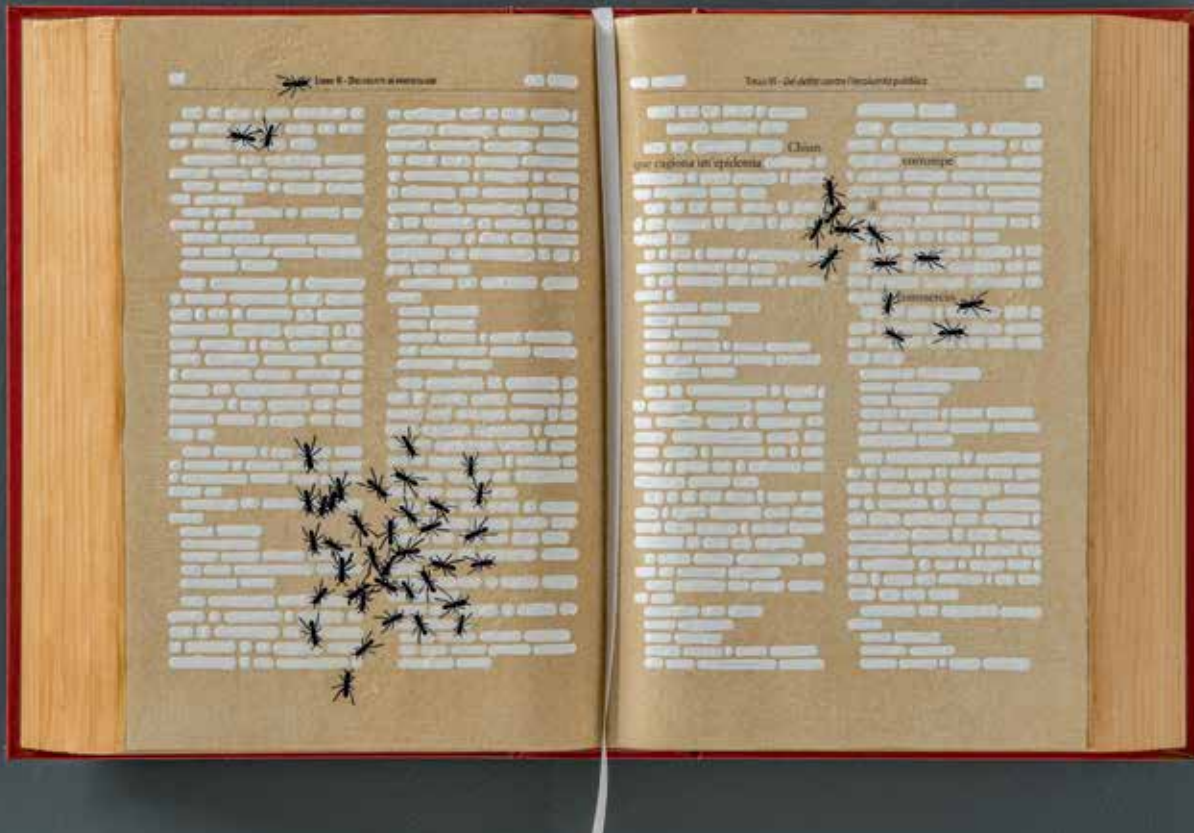 Libro II - Dei delitti in particolare
Titolo VI - Dei delitti contro l'incolumità pubblica
Chiun
que cagiona un'epidemia
corrompe
o
commercio